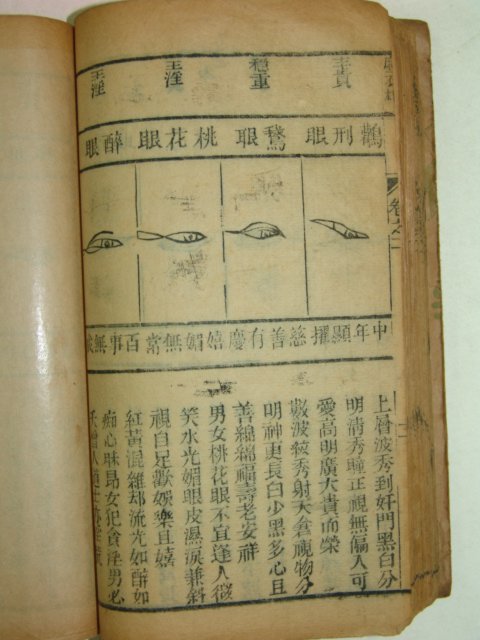 主貴
穩重
主淫
主淫
鶴刑眼
鵞眼
桃花眼
醉眼
卷之二
中年顯擢
慈善有慶
嬉媚無常
百事無成
上層波秀到奸門黑白分
明清秀瞳正視無偏人可
愛高明廣大貴而榮
數波紋秀射天倉視物分
明神更長白少黑多心且
善綿綿福壽老安祥
男女桃花眼不宜逢人微
笑水光媚眼皮濕淚兼斜
視自足歡娛樂且嬉
紅黃混雜却流光如醉如
痴心昧昂女犯貪淫男必